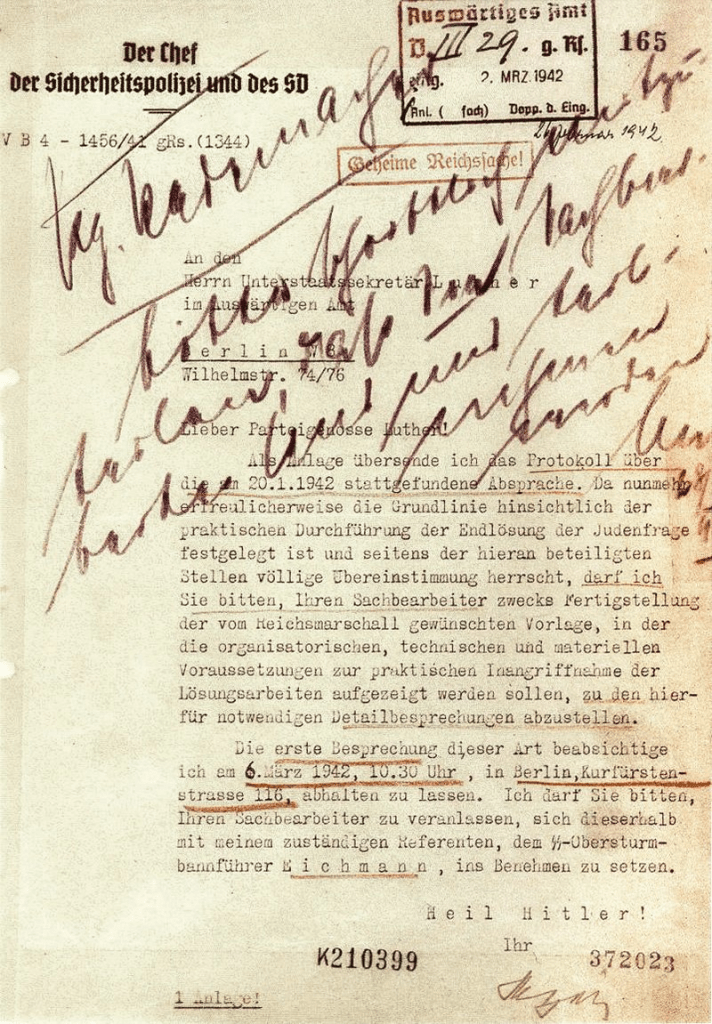 Der Chef
der Sicherheitspolizei und des SD
V B 4 - 1456/41 gRs.(1344)
Auswärtiges Amt
D III 29. g. Rs.
eing. 2. MRZ. 1942
Anl. ( fach) Dopp. d. Eing.
165
1942
Geheime Reichssache!
Pg. Rademacher
bitte schriftlich
An den
Herrn Unterstaatssekretär L u t h e r
im Auswärtigen Amt
B e r l i n W 8
Wilhelmstr. 74/76
Lieber Parteigenosse Luther!
Als Anlage übersende ich das Protokoll über
die am 20.1.1942 stattgefundene Absprache. Da nunmehr
erfreulicherweise die Grundlinie hinsichtlich der
praktischen Durchführung der Endlösung der Judenfrage
festgelegt ist und seitens der hieran beteiligten
Stellen völlige Übereinstimmung herrscht, darf ich
Sie bitten, Ihren Sachbearbeiter zwecks Fertigstellung
der vom Reichsmarschall gewünschten Vorlage, in der
die organisatorischen, technischen und materiellen
Voraussetzungen zur praktischen Inangriffnahme der
Lösungsarbeiten aufgezeigt werden sollen, zu den hier-
für notwendigen Detailbesprechungen abzustellen.
Die erste Besprechung dieser Art beabsichtige
ich am 6.März 1942, 10.30 Uhr , in Berlin,Kurfürsten-
strasse 116, abhalten zu lassen. Ich darf Sie bitten,
Ihren Sachbearbeiter zu veranlassen, sich dieserhalb
mit meinem zuständigen Referenten, dem SS-Obersturm-
bannführer E i c h m a n n , ins Benehmen zu setzen.
H e i l   H i t l e r !
Ihr
K210399
372023
1 Anlage!